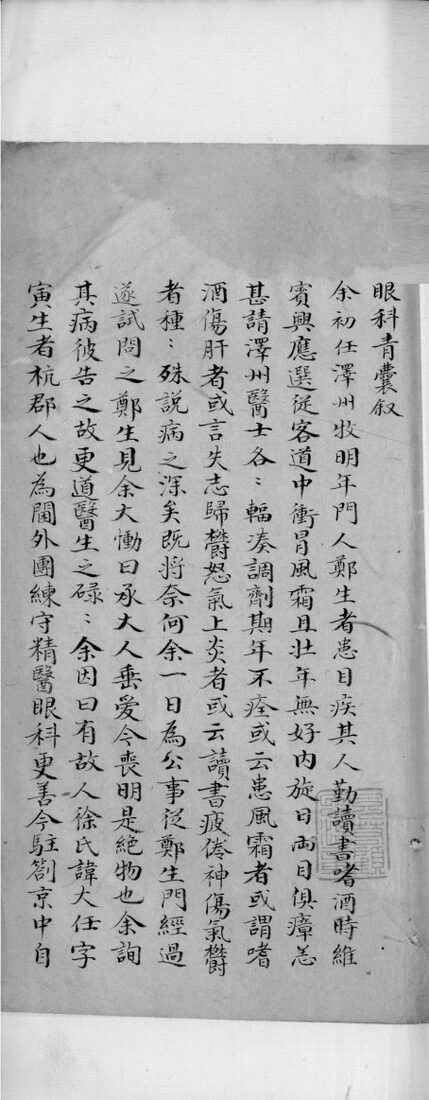 眼科青囊叙
余初任澤州牧明年門人鄭生者患目疾其人勤讀書嗜酒時維
賓興應選従客道中衝冐風霜且壯年無好内旋日兩目俱瘴恙
甚請澤州醫士各〻輻凑調劑期年不痊或云患風霜者或謂嗜
酒傷肝者或言失志歸欝怒氣上炎者或云讀書疲倦神傷氣欝
者種〻殊説病之深矣既將奈何余一日為公事従鄭生門經過
遂試問之鄭生見余大慟曰承大人垂爱今喪明是絶物也余詢
其病彼告之故更道醫生之碌〻余因曰有故人徐氏諱大任字
寅生者杭郡人也為閫外團練守精醫眼科更善今駐劄京中自